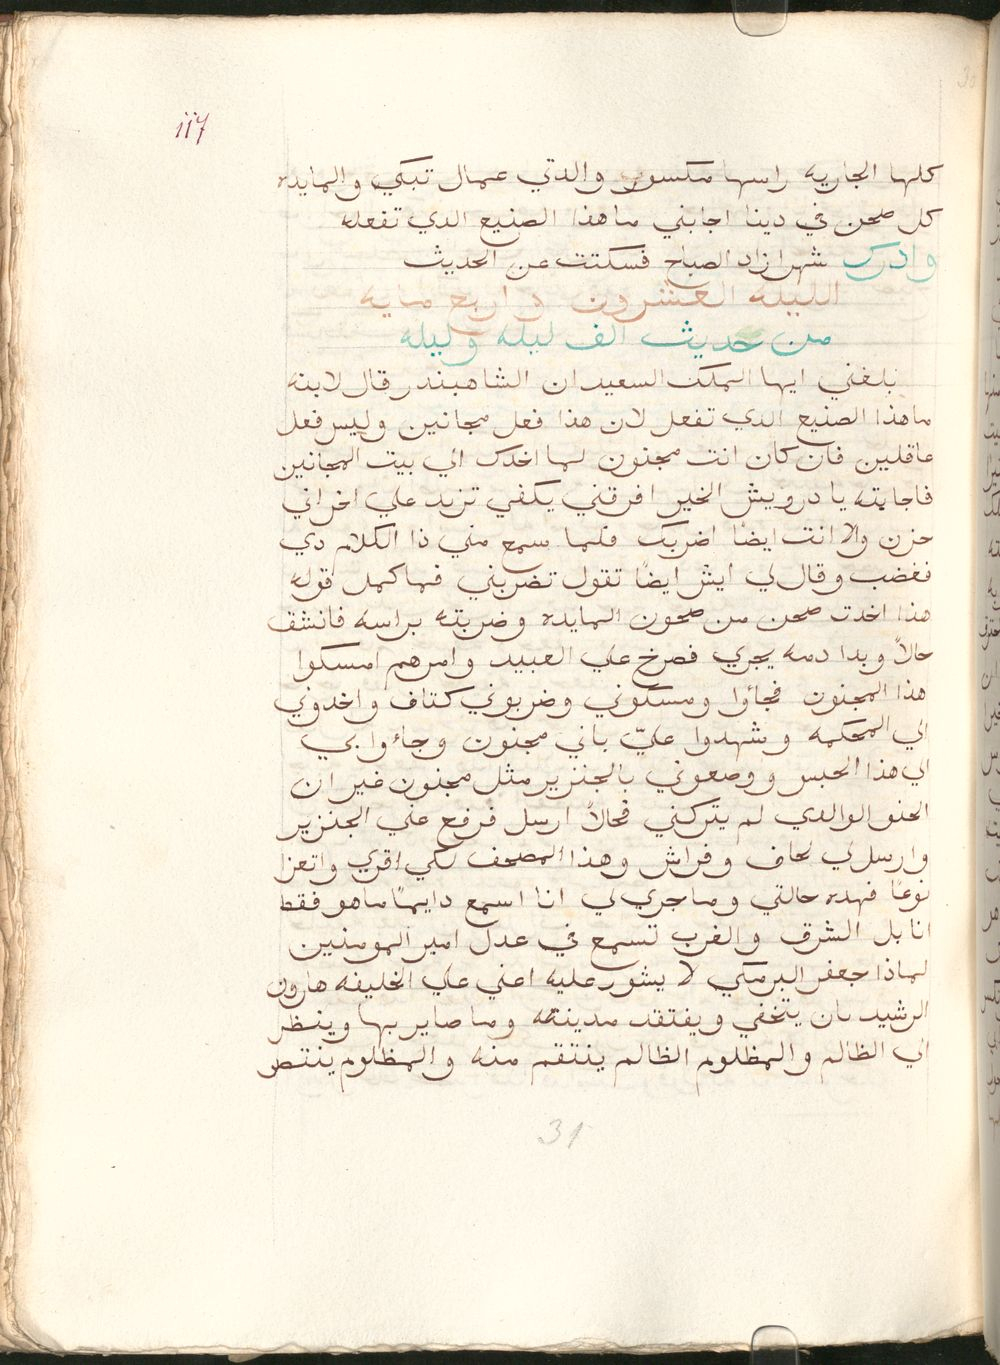 117
كلها الجاريه راسها مكسور والدتي عمال تبكي والمايده
كل صحن في دينا اجابني ما هذا الصنيع الدي تفعله
وادرك شهرازاد الصباح فسكتت عن الحديث
الليله العشرون واربع مايه
من حديث الف ليله وليله
بلغني ايها الملك السعيد ان الشاهبندر قال لابنه
ما هذا الصنيع الدي تفعل لان هذا فعل مجانين وليس فعل
عاقلين فان كان انت مجنون لما اخدك الي بيت المجانين
فاجابته يا درويش الخير افرقني يكفي تزيد علي اخراني
حزن والا انت ايضًا اضربك فلما سمع مني ذا الكلام دي
فغضب وقال لي ايش ايضًا تقول تضربني فما كمل قوله
هذا اخدت صحن من صحون المايده وضربته براسه فانشق
حالاً وبدا دمه يجري فصرخ علي العبيد وامرهم امسكوا
هذا المجنون فجاؤا ومسكوني وضربوني كتاف واخدوني
الي المحكمه وشهدوا عليّ باني مجنون وجاءوا بي
الي هذا الحبس ووضعوني بالجنزير مثل مجنون غير ان
الحنو الوالدي لم يتركني فحالاً ارسل فرفع عني الجنزير
وارسل لي لحاف وفراش وهذا المصحف لكي اقري واتعزا
نوعًا فهده حالتي وما جري لي انا اسمع دايمًا ما هو فقط
انا بل الشرق والغرب تسمع في عدل امير المومنين
لماذا جعفر البرمكي لا يشور عليه اعني علي الخليفه هارون
الرشيد بان يتخفي ويفتقد مدينته وما صاير بها وينظر
الي الظالم والمظلوم الظالم ينتقم منه والمظلوم ينتصر
31